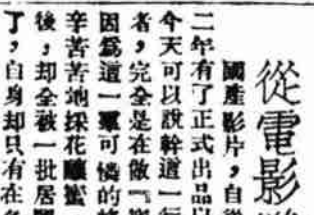 從電影
國產影片，自從
二年有了正式出品
今天可以說幹這一行
者，完全是在做『
因爲這一羣可憐的
辛苦苦地採花釀蜜
後，却全被一批居
了，自身却只有在